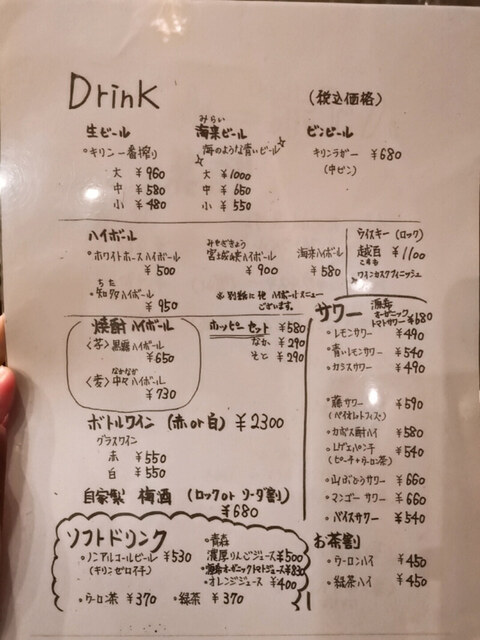 Drink
(税込価格)
生ビール
・キリン一番搾り
大 ¥960
中 ¥580
小 ¥480
みらい
海来ビール
海のような青いビール
大 ¥1000
中 ¥650
小 ¥550
ビンビール
キリンラガー ¥680
(中ビン)
ハイボール
・ホワイトホースハイボール
¥500
ちた
・知多ハイボール
¥950
みやぎきょう
宮城峡ハイボール
¥900
海来ハイボール
¥580
※別紙に他ハイボールメニュー
ございます。
ウイスキー(ロック)
越百 ¥1100
こすも
・ワインカスクフィニッシュ
焼酎ハイボール
〈芋〉黒霧ハイボール
¥650
なかなか
〈麦〉中々ハイボール
¥730
ホッピーセット ¥580
なか ¥290
そと ¥290
ボトルワイン (赤or白) ¥2300
グラスワイン
赤 ¥550
白 ¥550
自家製 梅酒 (ロックorソーダ割)
¥680
サワー
オーガニック
トマトサワー ¥680
・レモンサワー ¥490
・青いレモンサワー ¥540
・カシスサワー ¥490
・藤サワー ¥590
(バイオレットフィズ)
・カボス酎ハイ ¥580
・レゲエパンチ ¥540
(ピーチ+ウーロン茶)
・山ぶどうサワー ¥660
・マンゴーサワー ¥660
・バイスサワー ¥540
お茶割
・ウーロンハイ ¥450
・緑茶ハイ ¥450
ソフトドリンク
・ノンアルコールビール ¥530
(キリンゼロイチ)
・ウーロン茶 ¥370
・緑茶 ¥370
・青森
濃厚りんごジュース ¥500
オーガニックトマトジュース ¥830
・オレンジジュース ¥400